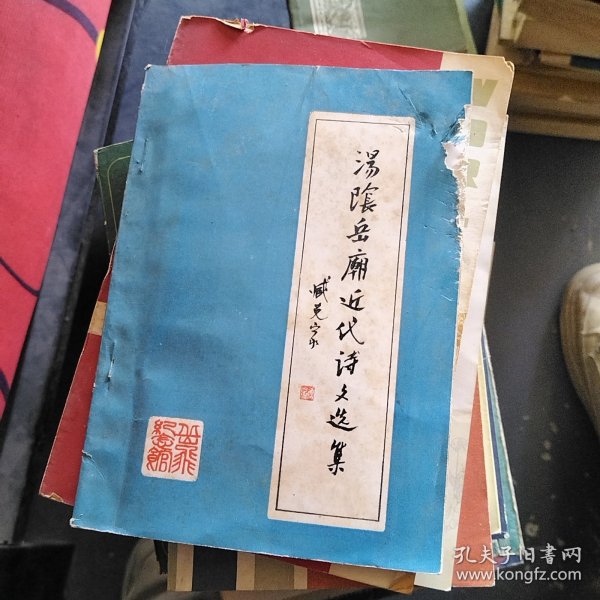 湯陰岳廟近代诗文选集
臧克家
岳飛
紀念館
孔夫子旧书网
www.kongfz.com